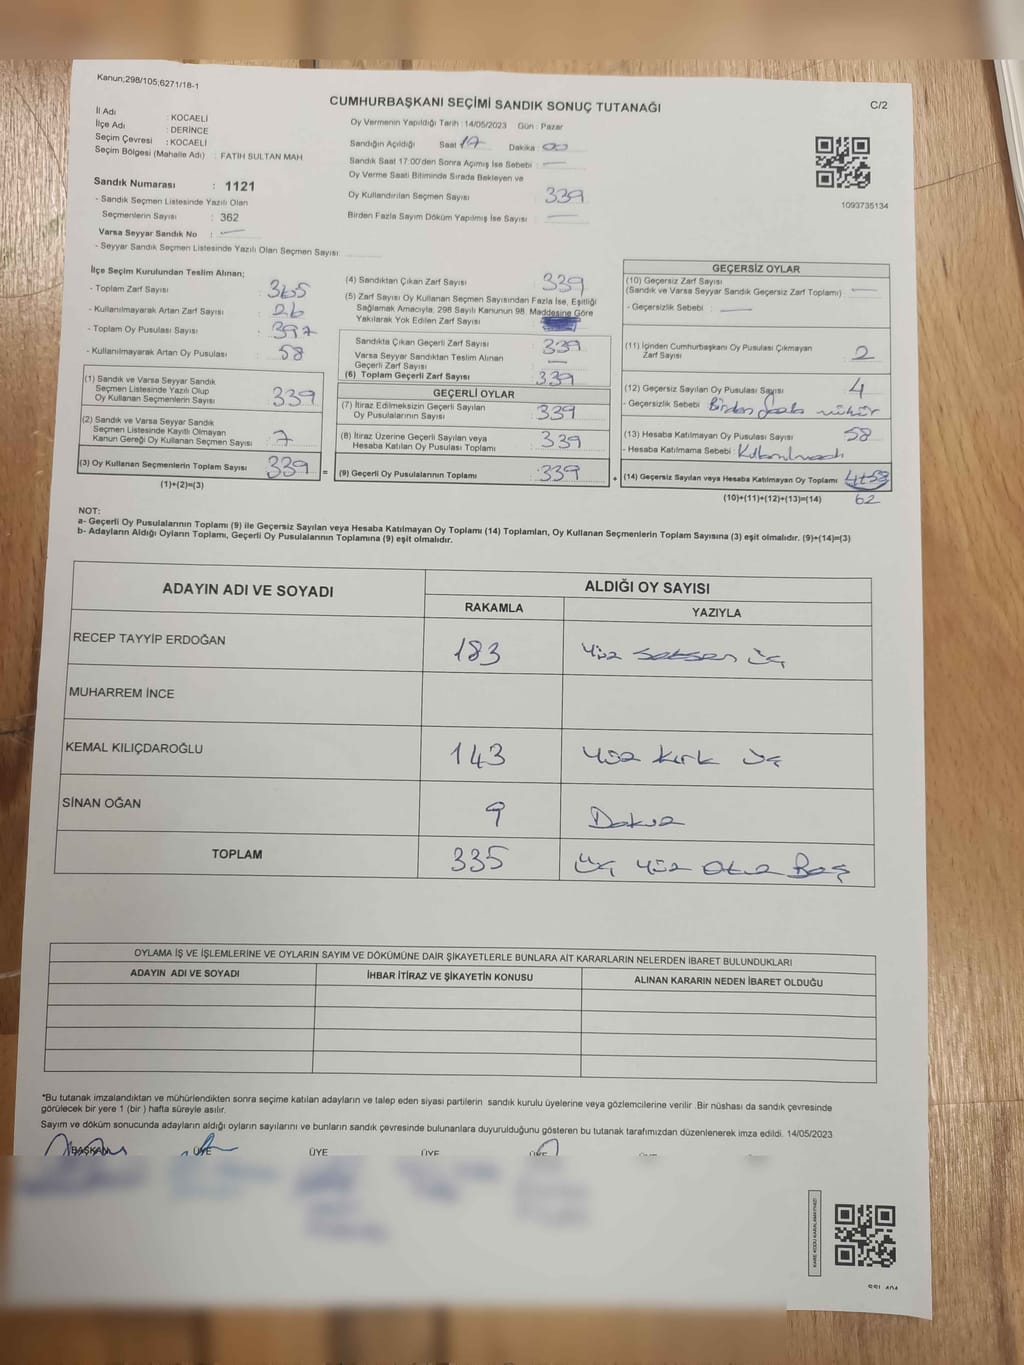 Kanun;298/105;6271/18-1
CUMHURBAŞKANI SEÇİMİ SANDIK SONUÇ TUTANAĞI
C/2
İl Adı : KOCAELİ
İlçe Adı : DERİNCE
Seçim Çevresi : KOCAELİ
Seçim Bölgesi (Mahalle Adı) : FATİH SULTAN MAH.
Sandık Numarası : 1121
- Sandık Seçmen Listesinde Yazılı Olan
Seçmenlerin Sayısı : 362
Varsa Seyyar Sandık No : —
- Seyyar Sandık Seçmen Listesinde Yazılı Olan Seçmen Sayısı :
Oy Vermenin Yapıldığı Tarih :14/05/2023 Gün : Pazar
Sandığın Açıldığı Saat 17 Dakika 00
Sandık Saat 17:00'den Sonra Açımış İse Sebebi : —
Oy Verme Saati Bitiminde Sırada Bekleyen ve
Oy Kullandırılan Seçmen Sayısı 339
Birden Fazla Sayım Döküm Yapılmış İse Sayısı : —
1093735134
İlçe Seçim Kurulundan Teslim Alınan;
- Toplam Zarf Sayısı : 365
- Kullanılmayarak Artan Zarf Sayısı : 26
- Toplam Oy Pusulası Sayısı : 397
- Kullanılmayarak Artan Oy Pusulası : 58
(1) Sandık ve Varsa Seyyar Sandık
Seçmen Listesinde Yazılı Olup
Oy Kullanan Seçmenlerin Sayısı : 339
(2) Sandık ve Varsa Seyyar Sandık
Seçmen Listesinde Kayıtlı Olmayan
Kanun Gereği Oy Kullanan Seçmen Sayısı : 7
(3) Oy Kullanan Seçmenlerin Toplam Sayısı 339 =
(1)+(2)=(3)
(4) Sandıktan Çıkan Zarf Sayısı 339
(5) Zarf Sayısı Oy Kullanan Seçmen Sayısından Fazla İse, Eşitliği
Sağlamak Amacıyla, 298 Sayılı Kanunun 98. Maddesine Göre
Yakılarak Yok Edilen Zarf Sayısı :
Sandıkta Çıkan Geçerli Zarf Sayısı 339
Varsa Seyyar Sandıktan Teslim Alınan
Geçerli Zarf Sayısı —
(6) Toplam Geçerli Zarf Sayısı 339
GEÇERLİ OYLAR
(7) İtiraz Edilmeksizin Geçerli Sayılan
Oy Pusulalarının Sayısı 339
(8) İtiraz Üzerine Geçerli Sayılan veya
Hesaba Katılan Oy Pusulası Toplamı 339
(9) Geçerli Oy Pusulalarının Toplamı 339 +
GEÇERSİZ OYLAR
(10) Geçersiz Zarf Sayısı
(Sandık ve Varsa Seyyar Sandık Geçersiz Zarf Toplamı) —
- Geçersizlik Sebebi : —
(11) İçinden Cumhurbaşkanı Oy Pusulası Çıkmayan
Zarf Sayısı 2
(12) Geçersiz Sayılan Oy Pusulası Sayısı 4
- Geçersizlik Sebebi : Birden fazla mühür
(13) Hesaba Katılmayan Oy Pusulası Sayısı 58
- Hesaba Katılmama Sebebi :
(14) Geçersiz Sayılan veya Hesaba Katılmayan Oy Toplamı
(10)+(11)+(12)+(13)=(14) 62
NOT:
a- Geçerli Oy Pusulalarının Toplamı (9) ile Geçersiz Sayılan veya Hesaba Katılmayan Oy Toplamı (14) Toplamları, Oy Kullanan Seçmenlerin Toplam Sayısına (3) eşit olmalıdır. (9)+(14)=(3)
b- Adayların Aldığı Oyların Toplamı, Geçerli Oy Pusulalarının Toplamına (9) eşit olmalıdır.
ADAYIN ADI VE SOYADI
ALDIĞI OY SAYISI
RAKAMLA YAZIYLA
RECEP TAYYİP ERDOĞAN 183 Yüz seksen üç
MUHARREM İNCE
KEMAL KILIÇDAROĞLU 143 Yüz kırk üç
SİNAN OĞAN 9 Dokuz
TOPLAM 335 Üç yüz otuz Beş
OYLAMA İŞ VE İŞLEMLERİNE VE OYLARIN SAYIM VE DÖKÜMÜNE DAİR ŞİKAYETLERLE BUNLARA AİT KARARLARIN NELERDEN İBARET BULUNDUKLARI
ADAYIN ADI VE SOYADI İHBAR İTİRAZ VE ŞİKAYETİN KONUSU ALINAN KARARIN NEDEN İBARET OLDUĞU
*Bu tutanak imzalandıktan ve mühürlendikten sonra seçime katılan adayların ve talep eden siyasi partilerin sandık kurulu üyelerine veya gözlemcilerine verilir .Bir nüshası da sandık çevresinde
görülecek bir yere 1 (bir ) hafta süreyle asılır.
Sayım ve döküm sonucunda adayların aldığı oyların sayılarını ve bunların sandık çevresinde bulunanlara duyurulduğunu gösteren bu tutanak tarafımızdan düzenlenerek imza edildi. 14/05/2023
BAŞKAN ÜYE ÜYE ÜYE ÜYE